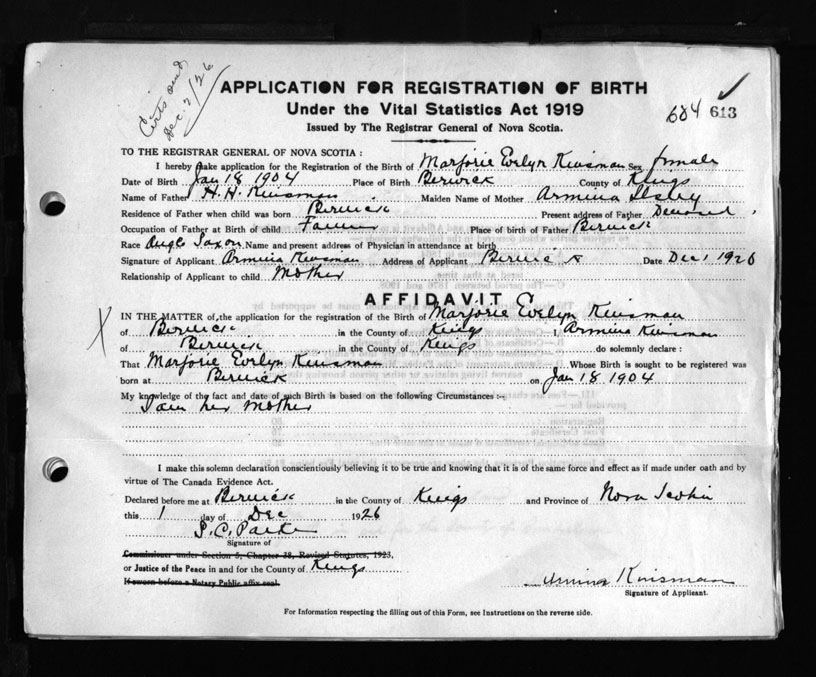 Certs and
Dec. 2/26
APPLICATION FOR REGISTRATION OF BIRTH
Under the Vital Statistics Act 1919
Issued by The Registrar General of Nova Scotia.
684 613
TO THE REGISTRAR GENERAL OF NOVA SCOTIA :
I hereby make application for the Registration of the Birth of Marjorie Evelyn Kinsman Sex female
Date of Birth Jan 18 1904 Place of Birth Berwick County of Kings
Name of Father H. H. Kinsman Maiden Name of Mother Armina
Residence of Father when child was born Berwick Present address of Father Deceased
Occupation of Father at Birth of child Farmer Place of birth of Father Berwick
Race Anglo Saxon Name and present address of Physician in attendance at birth
Signature of Applicant Armina Kinsman Address of Applicant Berwick Date Dec 1 1926
Relationship of Applicant to child Mother
AFFIDAVIT
X
IN THE MATTER of, the application for the registration of the Birth of Marjorie Evelyn Kinsman
of Berwick in the County of Kings I, Armina Kinsman
of Berwick in the County of Kings do solemnly declare :
That Marjorie Evelyn Kinsman Whose Birth is sought to be registered was
born at Berwick on Jan 18 1904
My knowledge of the fact and date of such Birth is based on the following Circumstances :-
I am her mother
I make this solemn declaration conscientiously believing it to be true and knowing that it is of the same force and effect as if made under oath and by
virtue of The Canada Evidence Act.
Declared before me at Berwick in the County of Kings and Province of Nova Scotia
this 1 day of Dec 1926
S. C. Parker
Signature of
Commissioner under Section 5, Chapter 38, Revised Statutes, 1923,
or Justice of the Peace in and for the County of Kings
If sworn before a Notary Public affix seal.
Armina Kinsman
Signature of Applicant.
For Information respecting the filling out of this Form, see Instructions on the reverse side.